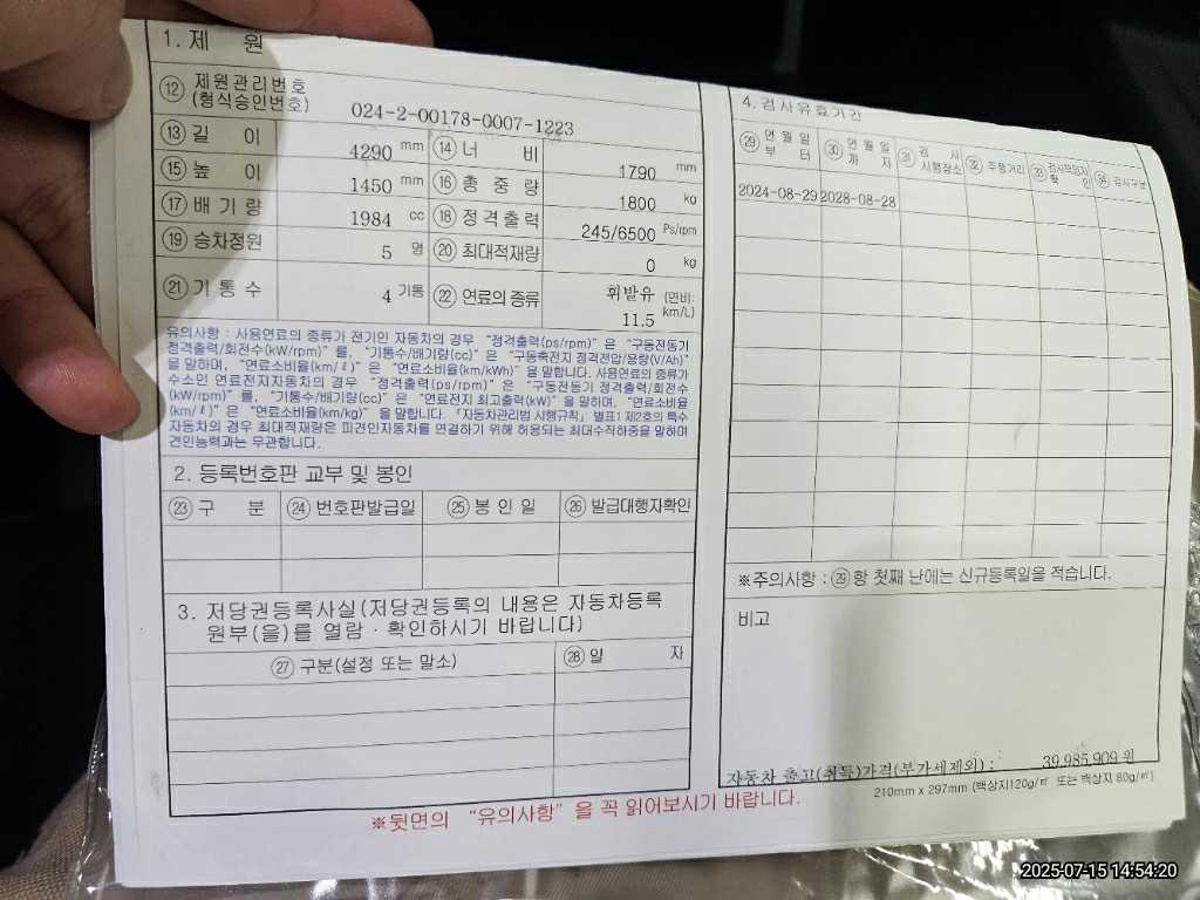 1. 제 원
⑫ 제원관리번호
(형식승인번호) 024-2-00178-0007-1223
⑬ 길 이 4290 mm ⑭ 너 비 1790 mm
⑮ 높 이 1450 mm ⑯ 총 중 량 1800 kg
⑰ 배 기 량 1984 cc ⑱ 정격출력 245/6500 Ps/rpm
⑲ 승차정원 5 명 ⑳ 최대적재량 0 kg
㉑ 기 통 수 4 기통 ㉒ 연료의 종류 휘발유 (연비:
11.5 km/L)
유의사항 : 사용연료의 종류가 전기인 자동차의 경우 "정격출력(ps/rpm)"은 "구동전동기
정격출력/회전수(kW/rpm)"를, "기통수/배기량(cc)"은 "구동축전지 정격전압/용량(V/Ah)"
을 말하며, "연료소비율(km/ℓ)"은 "연료소비율(km/kWh)"을 말합니다. 사용연료의 종류가
수소인 연료전지자동차의 경우 "정격출력(ps/rpm)"은 "구동전동기 정격출력/회전수
(kW/rpm)"를, "기통수/배기량(cc)"은 "연료전지 최고출력(kW)"을 말하며, "연료소비율
(km/ℓ)"은 "연료소비율(km/kg)"을 말합니다. 「자동차관리법 시행규칙」 별표1 제2호의 특수
자동차의 경우 최대적재량은 피견인자동차를 연결하기 위해 허용되는 최대수직하중을 말하며
견인능력과는 무관합니다.
2. 등록번호판 교부 및 봉인
㉓ 구 분 ㉔ 번호판발급일 ㉕ 봉 인 일 ㉖ 발급대행자확인
3. 저당권등록사실(저당권등록의 내용은 자동차등록
원부(을)를 열람 · 확인하시기 바랍니다)
㉗ 구분(설정 또는 말소) ㉘ 일 자
4. 검사유효기간
㉙ 연 월 일
부 터
㉚ 연 월 일
까 지
㉛ 검 사
시행장소
㉜ 주행거리
㉝ 검사책임자
확 인
㉞ 검사구분
2024-08-29 2028-08-28
※주의사항 : ㉙항 첫째 난에는 신규등록일을 적습니다.
비고
자동차 출고(취득)가격(부가세제외) : 39,985,909 원
210mm x 297mm (백상지120g/㎡ 또는 백상지 80g/㎡)
※뒷면의 "유의사항"을 꼭 읽어보시기 바랍니다.
2025-07-15 14:54:20